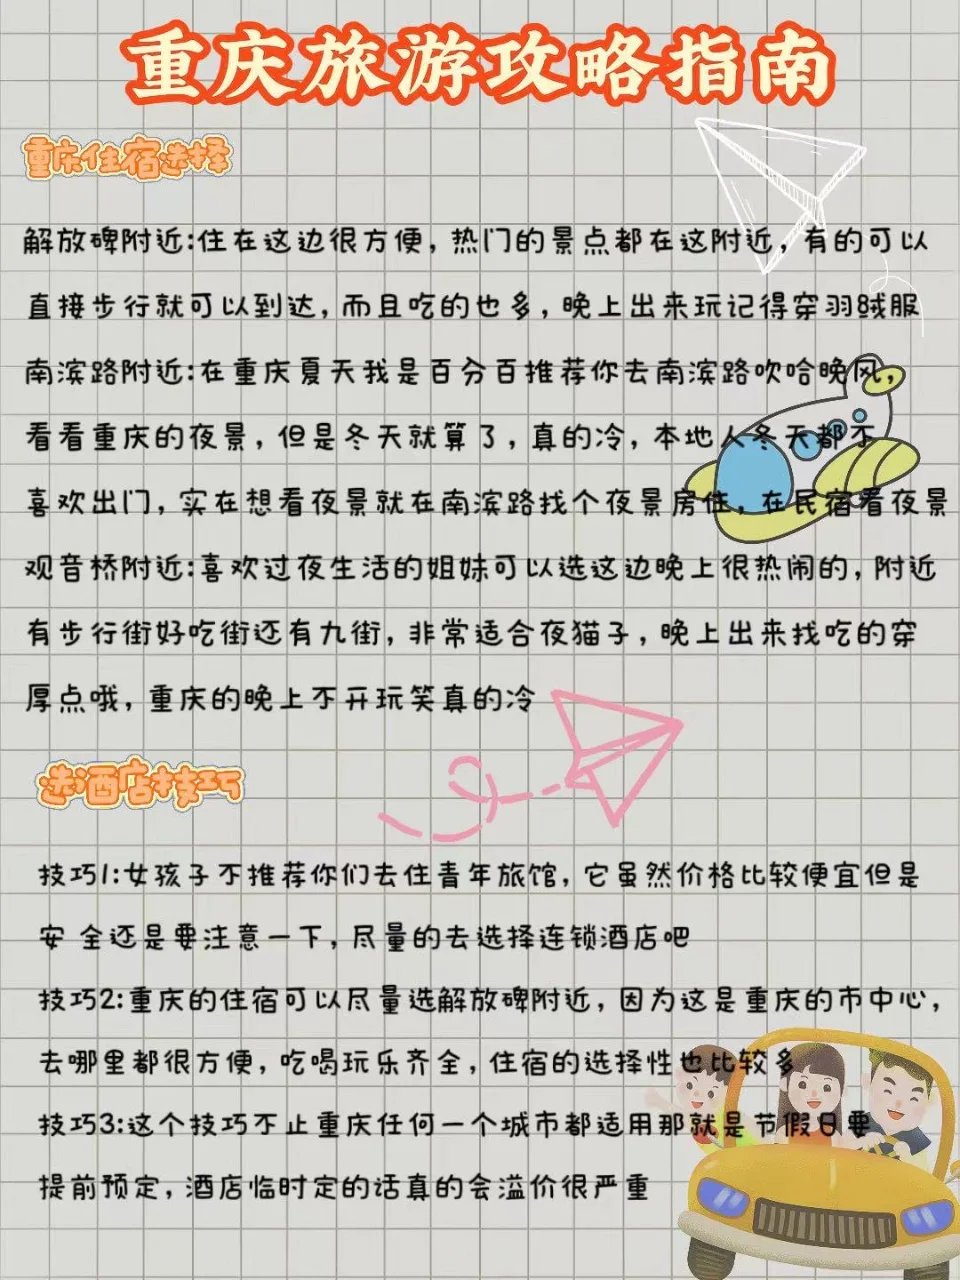 重庆旅游攻略指南
重庆住宿选择
解放碑附近:住在这边很方便,热门的景点都在这附近,有的可以
直接步行就可以到达,而且吃的也多,晚上出来玩记得穿羽绒服
南滨路附近:在重庆夏天我是百分百推荐你去南滨路吹哈晚风,
看看重庆的夜景,但是冬天就算了,真的冷,本地人冬天都不
喜欢出门,实在想看夜景就在南滨路找个夜景房住,在民宿看夜景
观音桥附近:喜欢过夜生活的姐妹可以选这边晚上很热闹的,附近
有步行街好吃街还有九街,非常适合夜猫子,晚上出来找吃的穿
厚点哦,重庆的晚上不开玩笑真的冷
选酒店技巧
技巧1:女孩子不推荐你们去住青年旅馆,它虽然价格比较便宜但是
安 全还是要注意一下,尽量的去选择连锁酒店吧
技巧2:重庆的住宿可以尽量选解放碑附近,因为这是重庆的市中心,
去哪里都很方便,吃喝玩乐齐全,住宿的选择性也比较多
技巧3:这个技巧不止重庆任何一个城市都适用那就是节假日要
提前预定,酒店临时定的话真的会溢价很严重